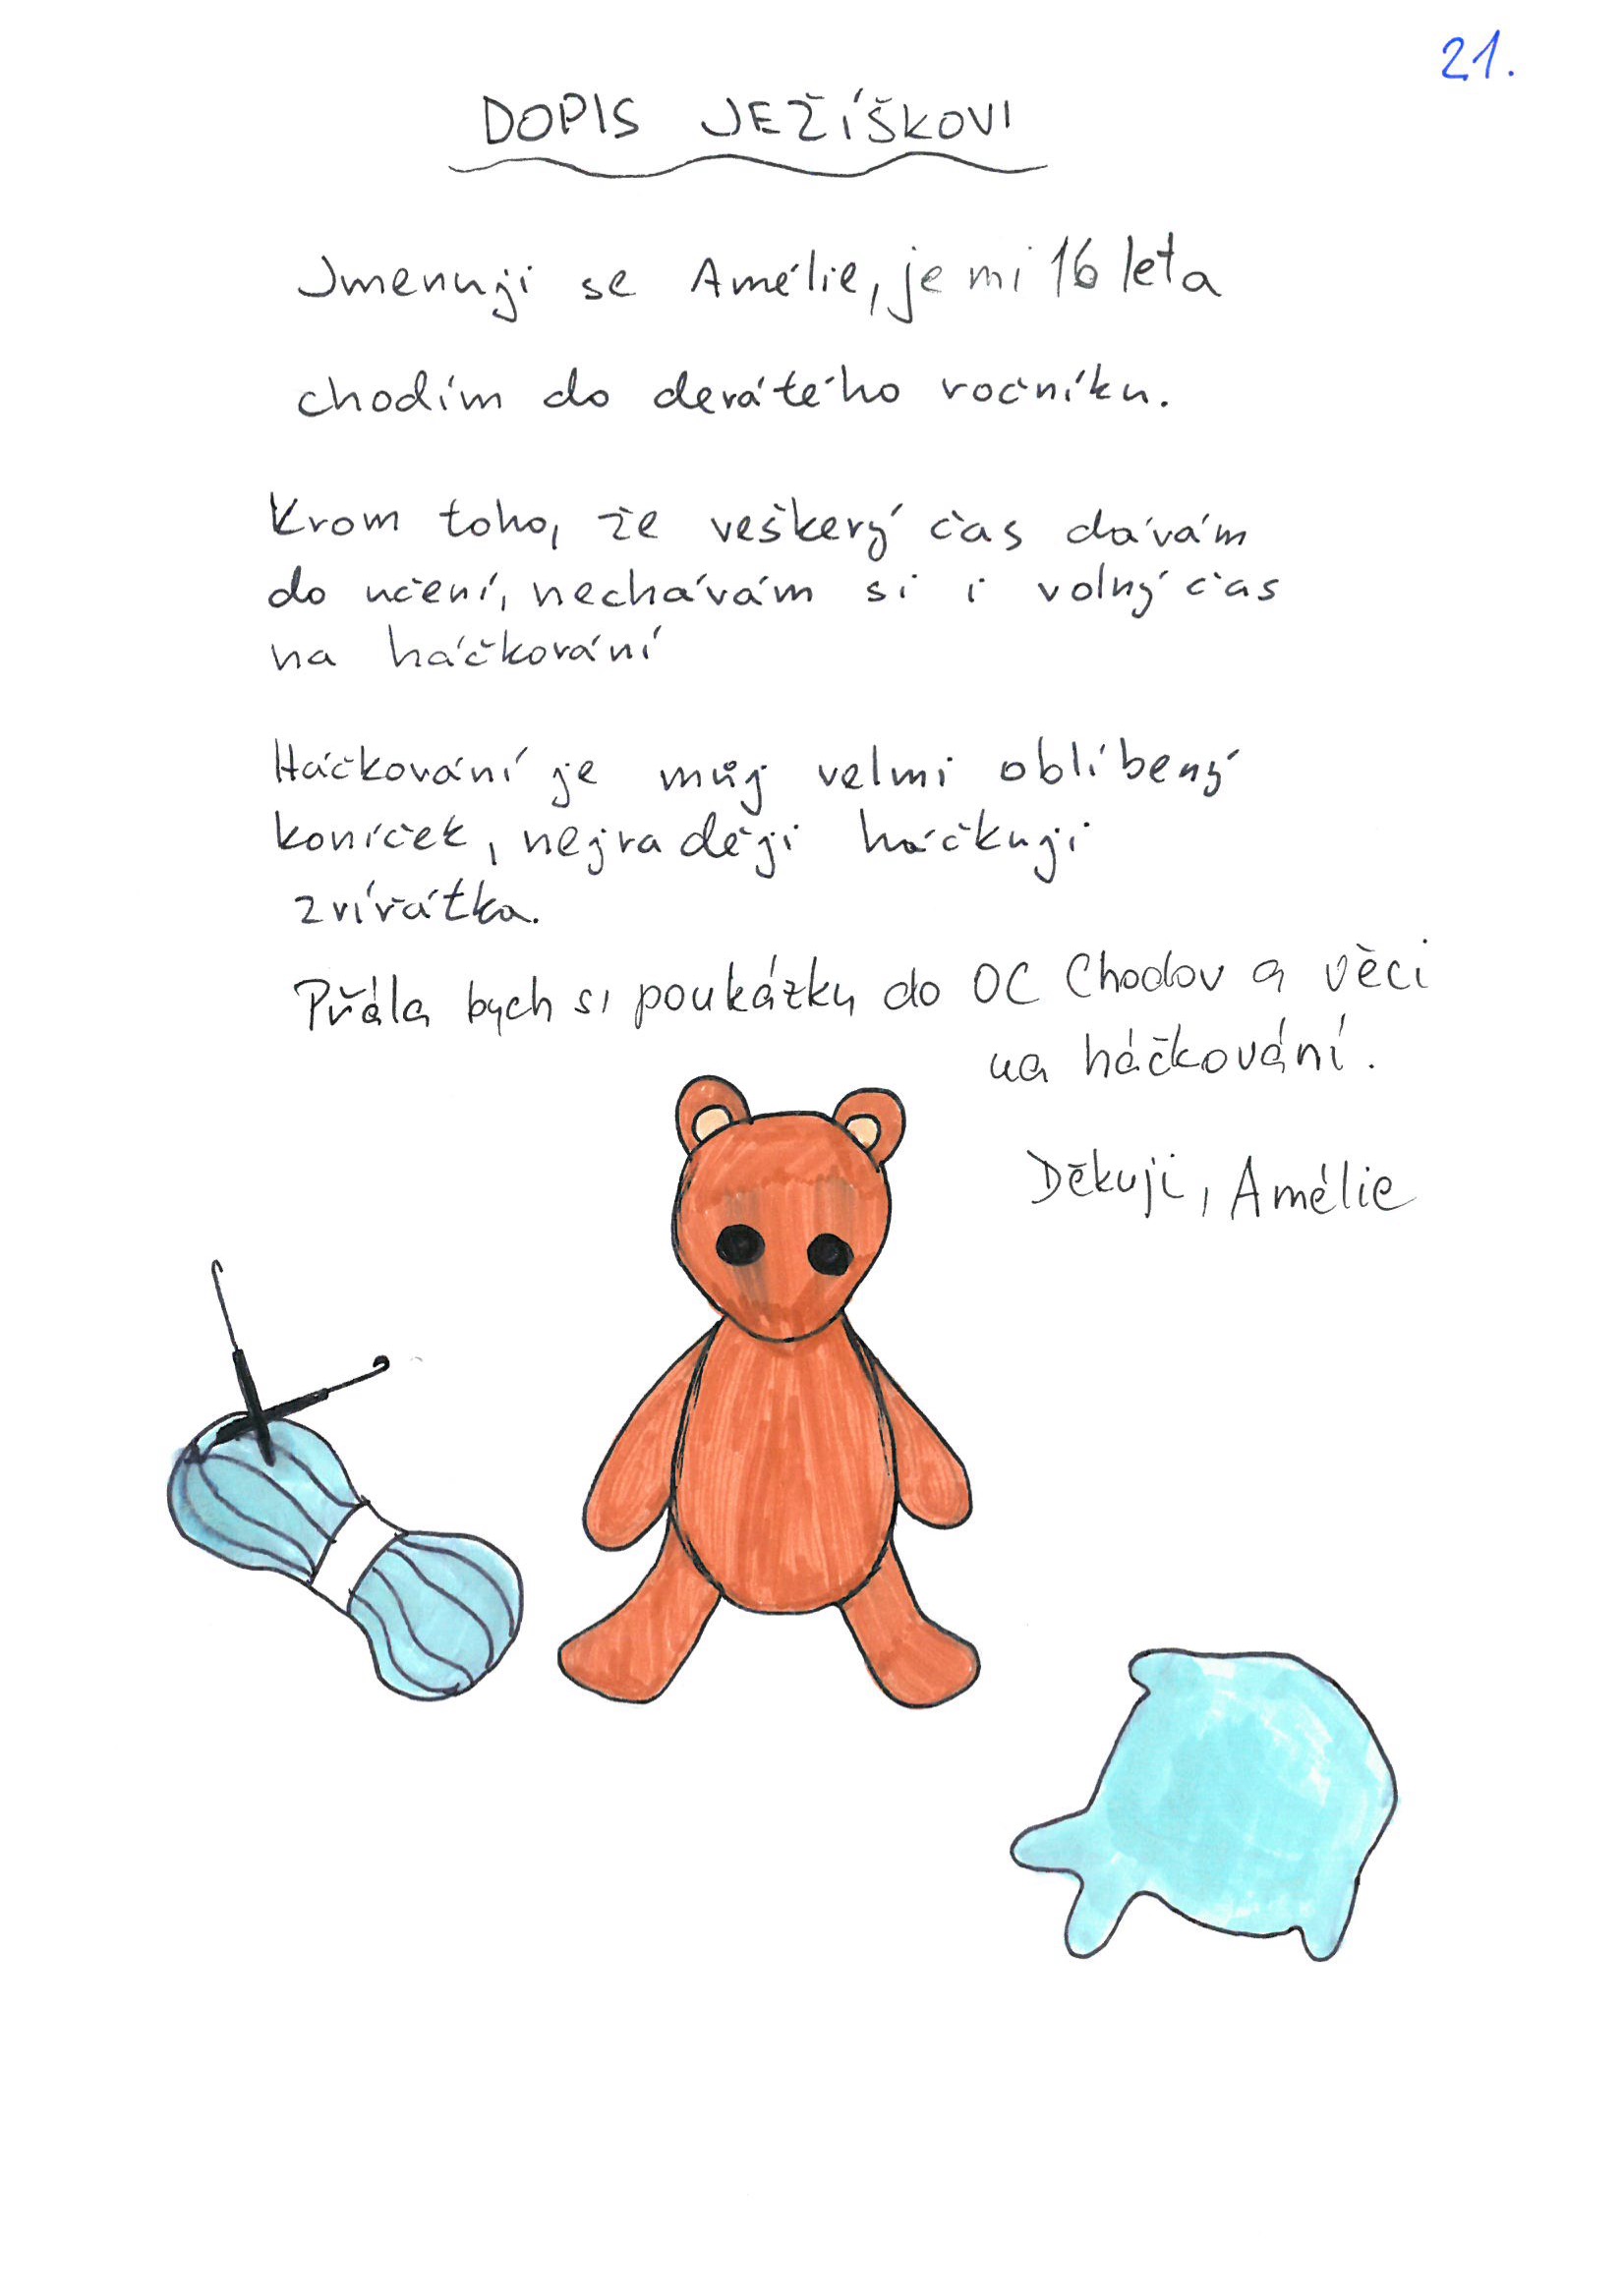 21.
DOPIS JEŽÍŠKOVI
Jmenuji se Amélie, je mi 16 leta
chodím do devátého ročníku.
Krom toho, že veškerý čas dávám
do učení, nechávám si i volný čas
na háčkování
Háčkování je můj velmi oblíbený
koníček, nejraději háčkuji
zvířátka.
Přála bych si poukázky do OC Chodov a věci
na háčkování.
Děkuji, Amélie